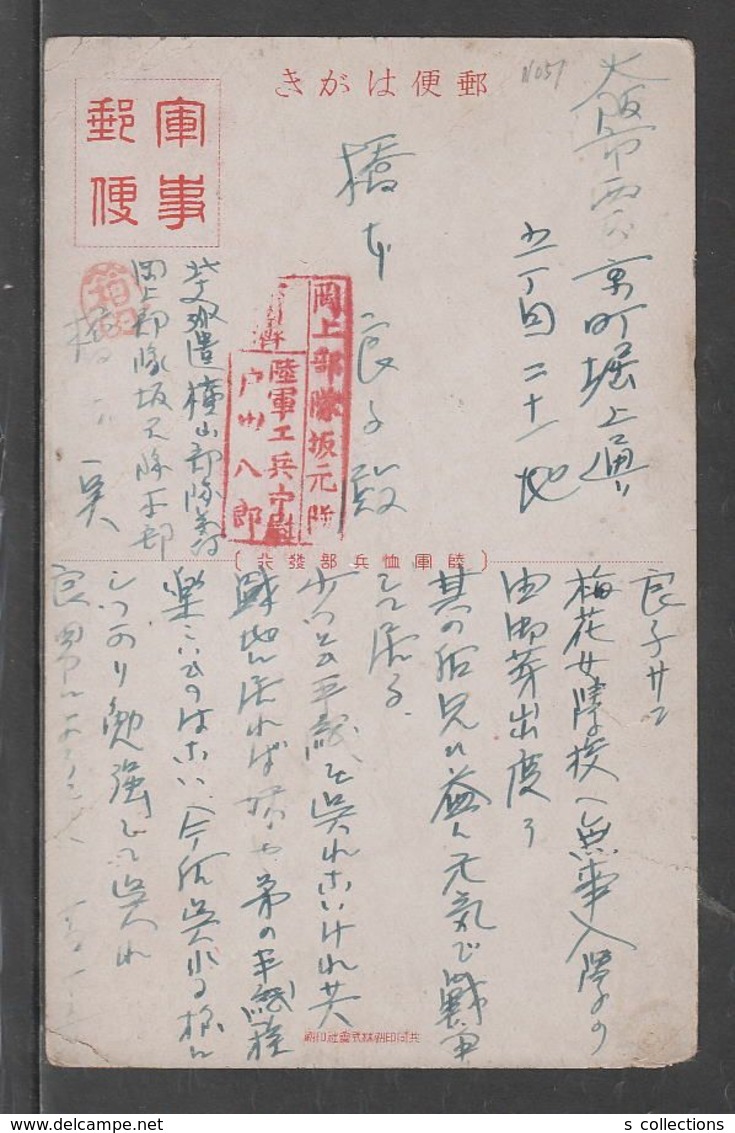 郵便はがき
軍事
郵便
NO57
大阪市西区京町堀上通リ
五丁目二十一地
橋本良子殿
岡上部隊坂元隊
陸軍工兵中尉
戸山八郎
北支派遣横山部隊気付
岡上部隊坂元隊本部
橋本
(陸軍恤兵部發行)
良子サン
梅花女學校へ無事入學の
由御芽出度う
其の后兄は益々元氣で軍
して居る
少つとも手紙を呉れないけれ共
戦地に居れば妹や弟の手紙程
楽しいものはない、今后呉れる様に
しつかり勉強して呉れ
共同印刷株式會社印刷
s collections